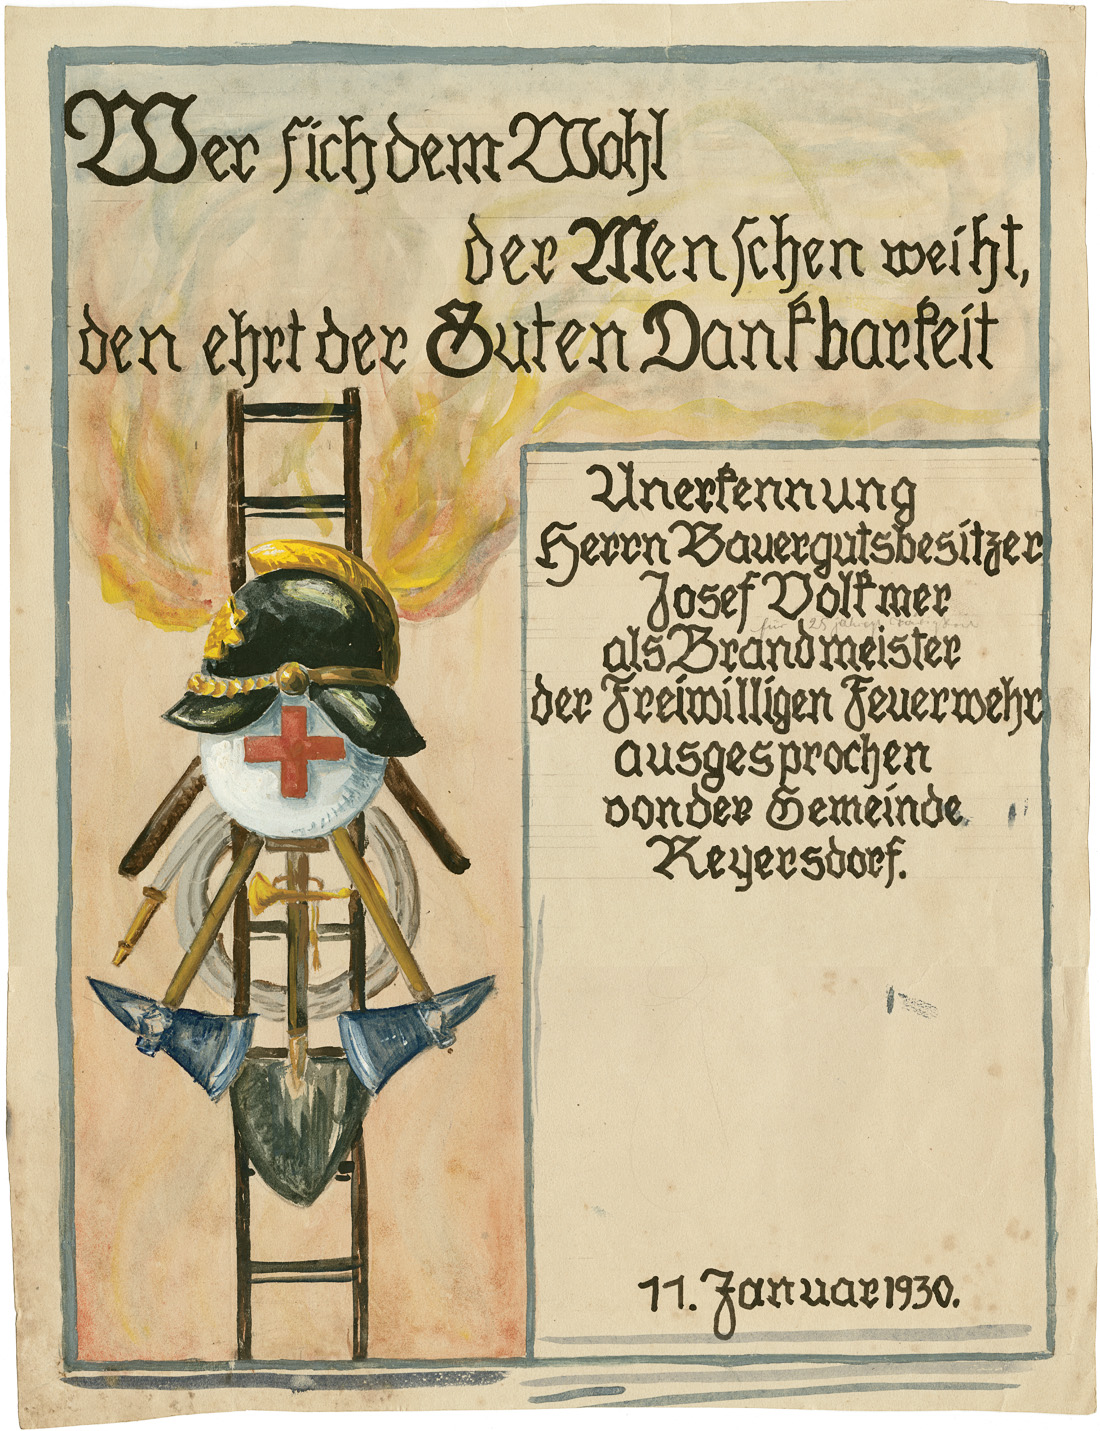 Wer sich dem Wohl
der Menschen weiht,
den ehrt der Guten Dankbarkeit
Anerkennung
Herrn Bauergutsbesitzer
Josef Volkmer
für 25 jähr
als Brandmeister
der Freiwilligen Feuerwehr
ausgesprochen
von der Gemeinde
Reyersdorf.
11. Januar 1930.